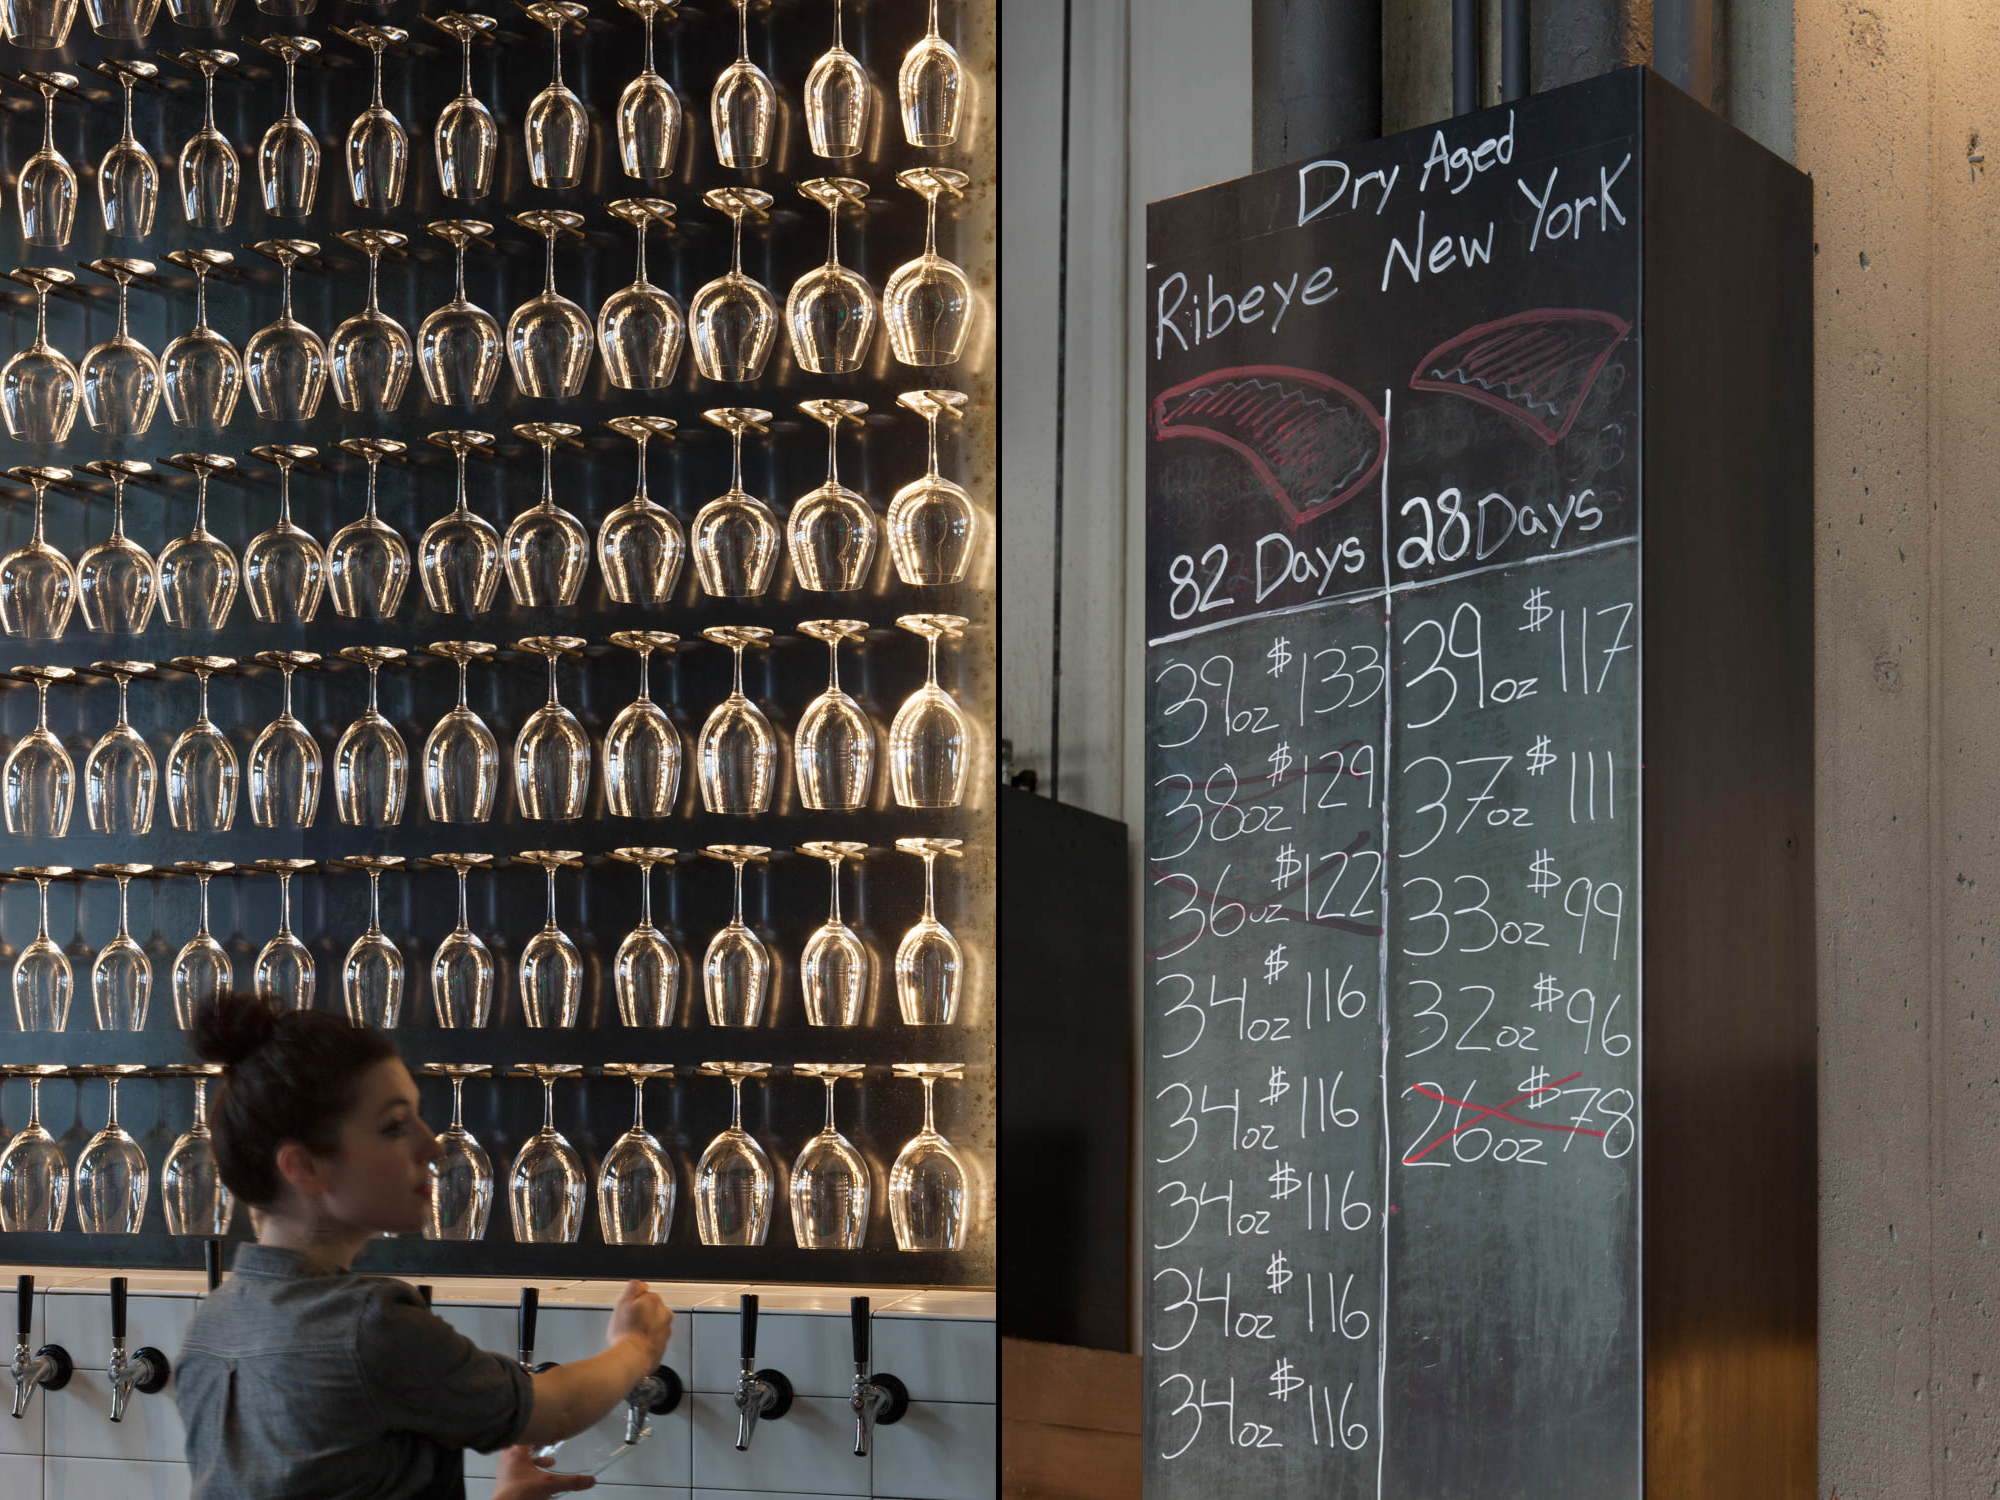 Dry Aged
Ribeye New York
82 Days 28 Days
39oz $133 39oz $117
38oz $129 37oz $111
36oz $122 33oz $99
34oz $116 32oz $96
34oz $116 26oz $78
34oz $116
34oz $116
34oz $116